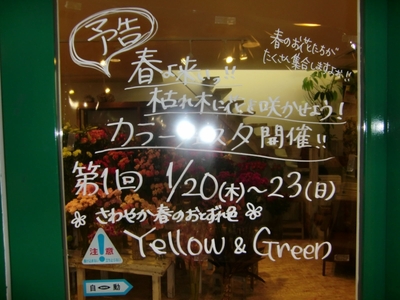 予告
春のお花たちが
たくさん集合しますよ!!
春よ来ーい!!
枯れ木に花を咲かせよう!
カラーフェスタ開催!!
第1回 1/20(木)~23(日)
さわやか春のおとずれ色
Yellow & Green
注意
自動